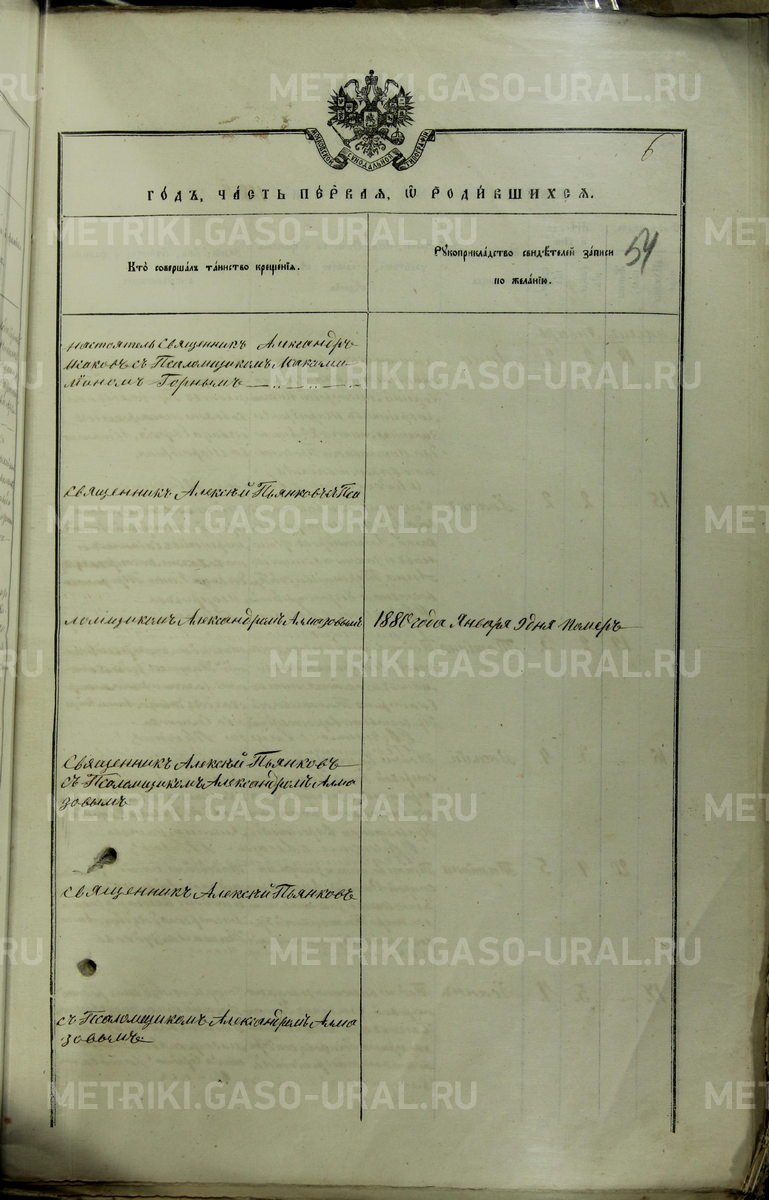 METRIKI.GASO-URAL.RU
6
МОСКОВСКОЙ СѴНОДАЛЬНОЙ ТИПОГРАФІИ
ГО́ДЪ, ЧА́СТЬ ПЕ́РВАѦ, Ѡ҆ РОДИ́ВШИХСѦ.
54
Кто̀ соверша́лъ та́инство креще́нїѧ.
Рꙋкоприкла́дство свидѣ́телей за́писи
по жела́нїю.
настоятель Священникъ Александръ
съ Псаломщикомъ Макси
Горнымъ
Священникъ Алексѣй Пьянковъ съ Пса
ломщикомъ Александромъ Алмазовымъ
1880 года Января 9 дня померъ
Священникъ Алексѣй Пьянковъ
съ Псаломщикомъ Александромъ Алма
зовымъ
Священникъ Алексѣй Пьянковъ
съ Псаломщикомъ Александромъ Алма
зовымъ